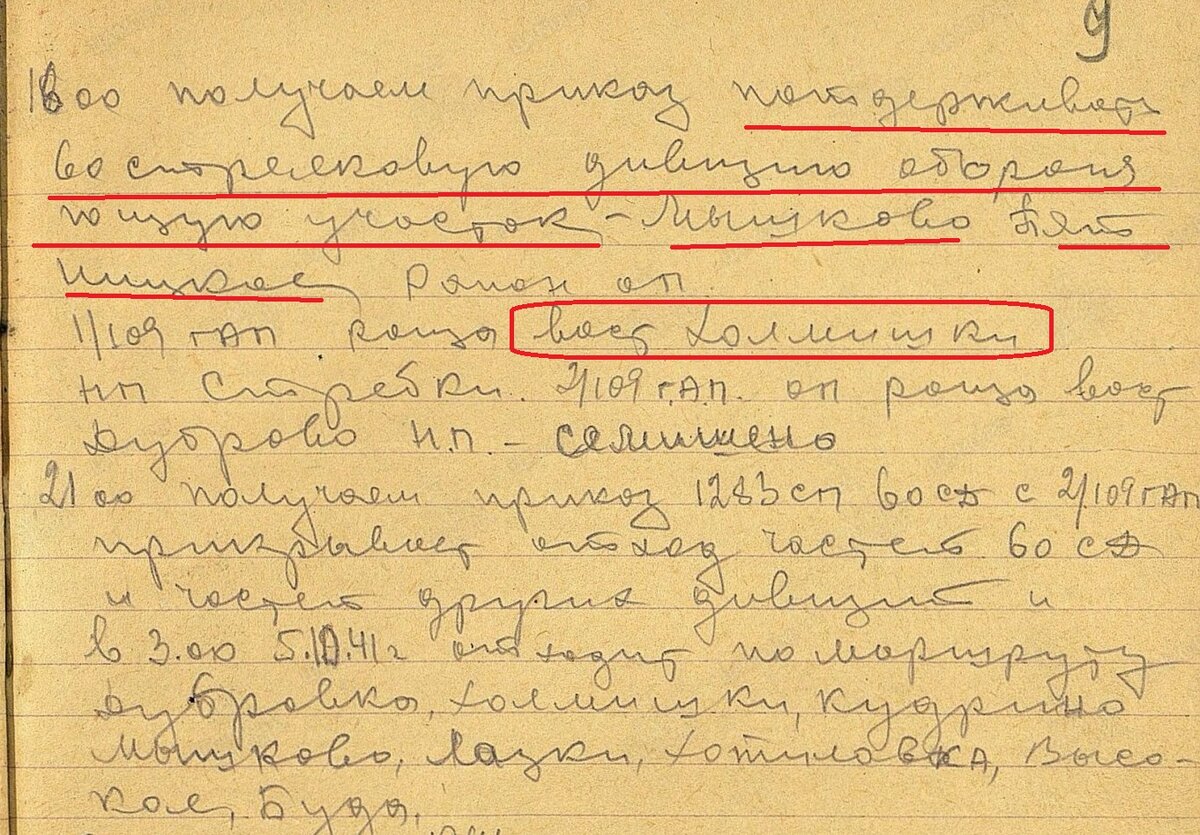 9
18 00 получаем приказ потдерживать
60 стрелковую дивизию обороня
ющую участок - Мышково Пят
ницкое Район оп.
1/109 гАП роща вост Холмишки
нп Стребки. 2/109 г.А.П. оп роща вост
Дуброво Н.П. - Селишено
21 00 получаем приказ 1283 сп 60 сд с 2/109 гАП
прикрывает отход частей 60 сд
и частей других дивизий и
в 3.00 5.10.41 г отходит по маршруту
Дубровка, Холмишки, Кудрино
Мышково, Лазки, Хотиловка, Высо-
кое, Буда,